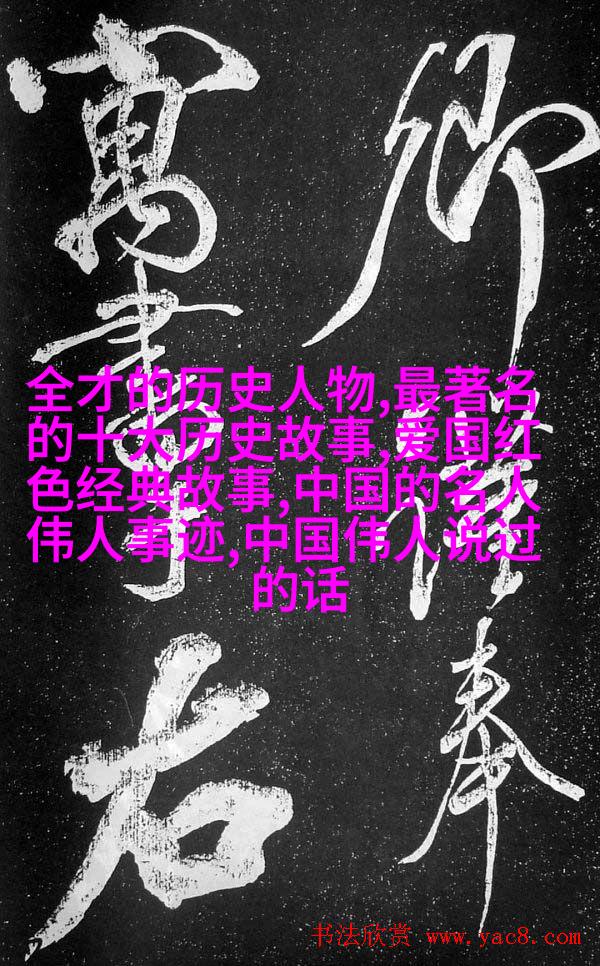 卿奉
右
全才的历史人物,最著名
的十大历史故事,爱国红
色经典故事,中国的名人
伟人事迹,中国伟人说过
的话
书法欣赏 www.yac8.com